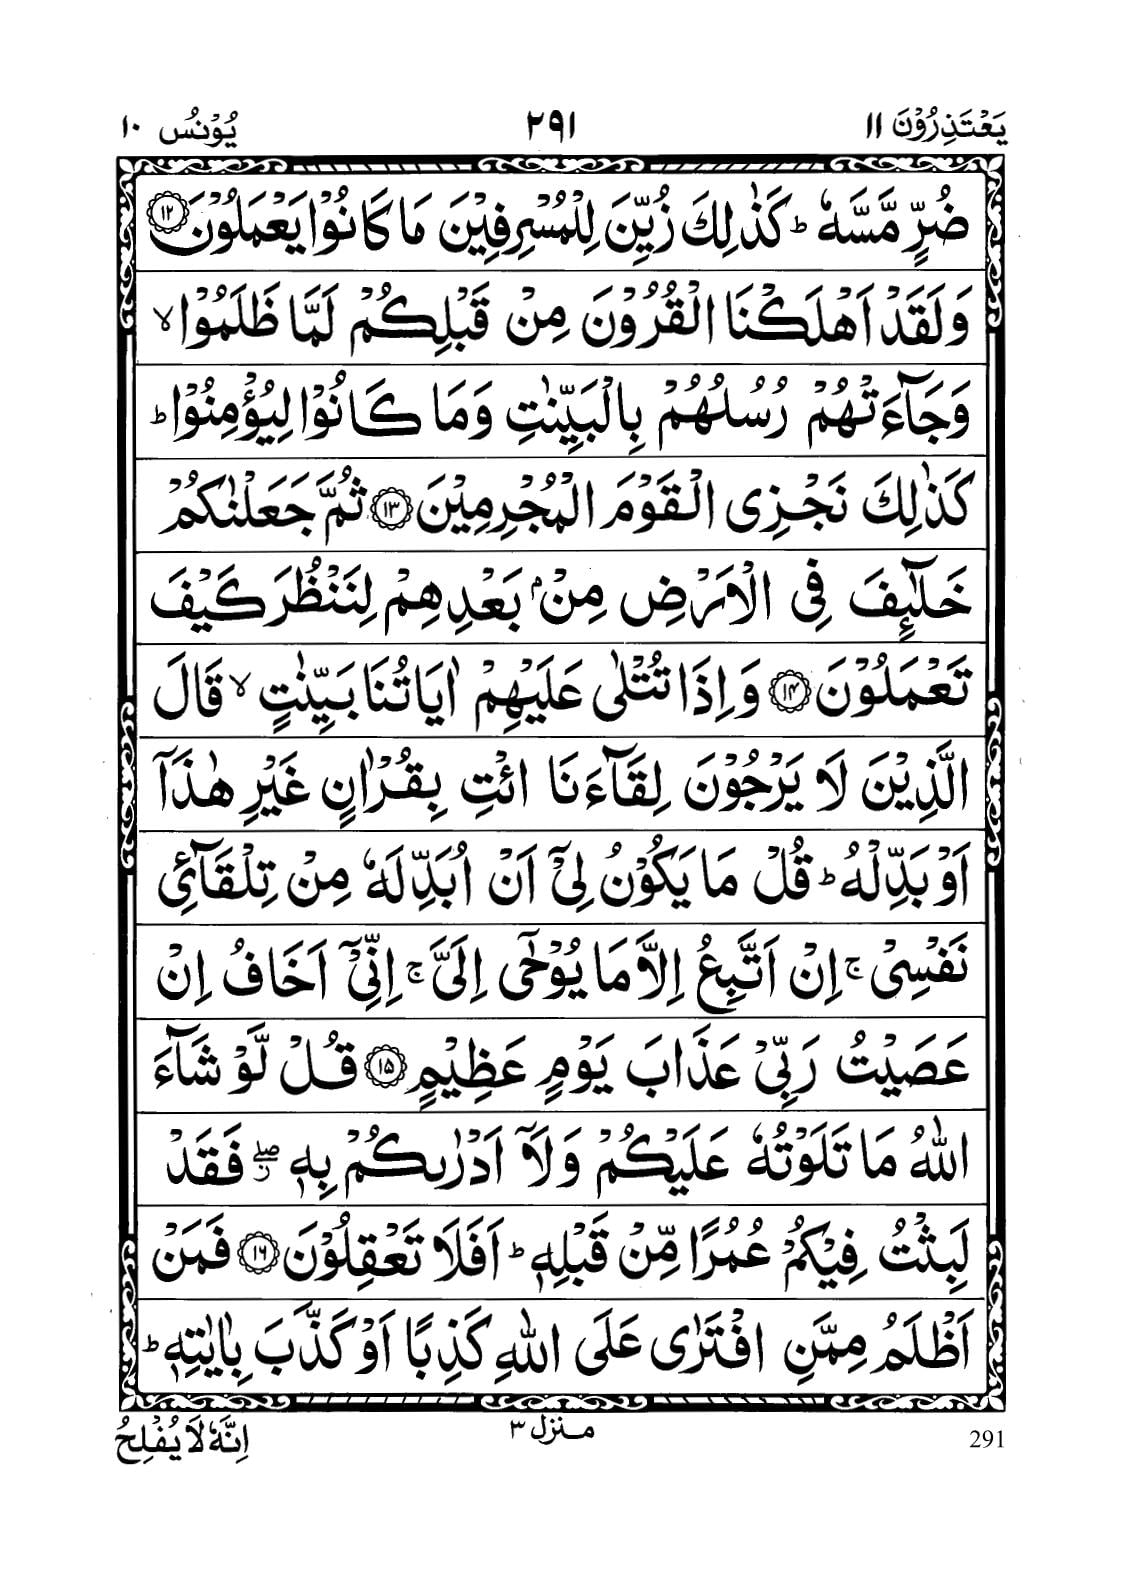 يَعْتَذِرُوْنَ ١١ ٢٩١ يُوْنُس ١٠
ضُرٍّ مَّسَّهٗ ؕ كَذٰلِكَ زُيِّنَ لِلْمُسْرِفِيْنَ مَا كَانُوْا يَعْمَلُوْنَ ﴿۱۲﴾
وَلَقَدْ اَهْلَكْنَا الْقُرُوْنَ مِنْ قَبْلِكُمْ لَمَّا ظَلَمُوْا ۙ
وَجَآءَتْهُمْ رُسُلُهُمْ بِالْبَيِّنٰتِ وَمَا كَانُوْا لِيُؤْمِنُوْا ؕ
كَذٰلِكَ نَجْزِى الْقَوْمَ الْمُجْرِمِيْنَ ﴿۱۳﴾ ثُمَّ جَعَلْنٰكُمْ
خَلٰٓئِفَ فِى الْاَرْضِ مِنْۢ بَعْدِهِمْ لِنَنْظُرَ كَيْفَ
تَعْمَلُوْنَ ﴿۱۴﴾ وَاِذَا تُتْلٰى عَلَيْهِمْ اٰيَاتُنَا بَيِّنٰتٍ ۙ قَالَ
الَّذِيْنَ لَا يَرْجُوْنَ لِقَآءَنَا ائْتِ بِقُرْاٰنٍ غَيْرِ هٰذَآ
اَوْ بَدِّلْهُ ؕ قُلْ مَا يَكُوْنُ لِىْٓ اَنْ اُبَدِّلَهٗ مِنْ تِلْقَآئِ
نَفْسِىْ ۚ اِنْ اَتَّبِعُ اِلَّا مَا يُوْحٰٓى اِلَىَّ ۚ اِنِّىْٓ اَخَافُ اِنْ
عَصَيْتُ رَبِّىْ عَذَابَ يَوْمٍ عَظِيْمٍ ﴿۱۵﴾ قُلْ لَّوْ شَآءَ
اللّٰهُ مَا تَلَوْتُهٗ عَلَيْكُمْ وَلَآ اَدْرٰىكُمْ بِهٖ ۖ فَقَدْ
لَبِثْتُ فِيْكُمْ عُمُرًا مِّنْ قَبْلِهٖ ؕ اَفَلَا تَعْقِلُوْنَ ﴿۱۶﴾ فَمَنْ
اَظْلَمُ مِمَّنِ افْتَرٰى عَلَى اللّٰهِ كَذِبًا اَوْ كَذَّبَ بِاٰيٰتِهٖ ؕ
291 منزل ۳ اِنَّهٗ لَا يُفْلِحُ